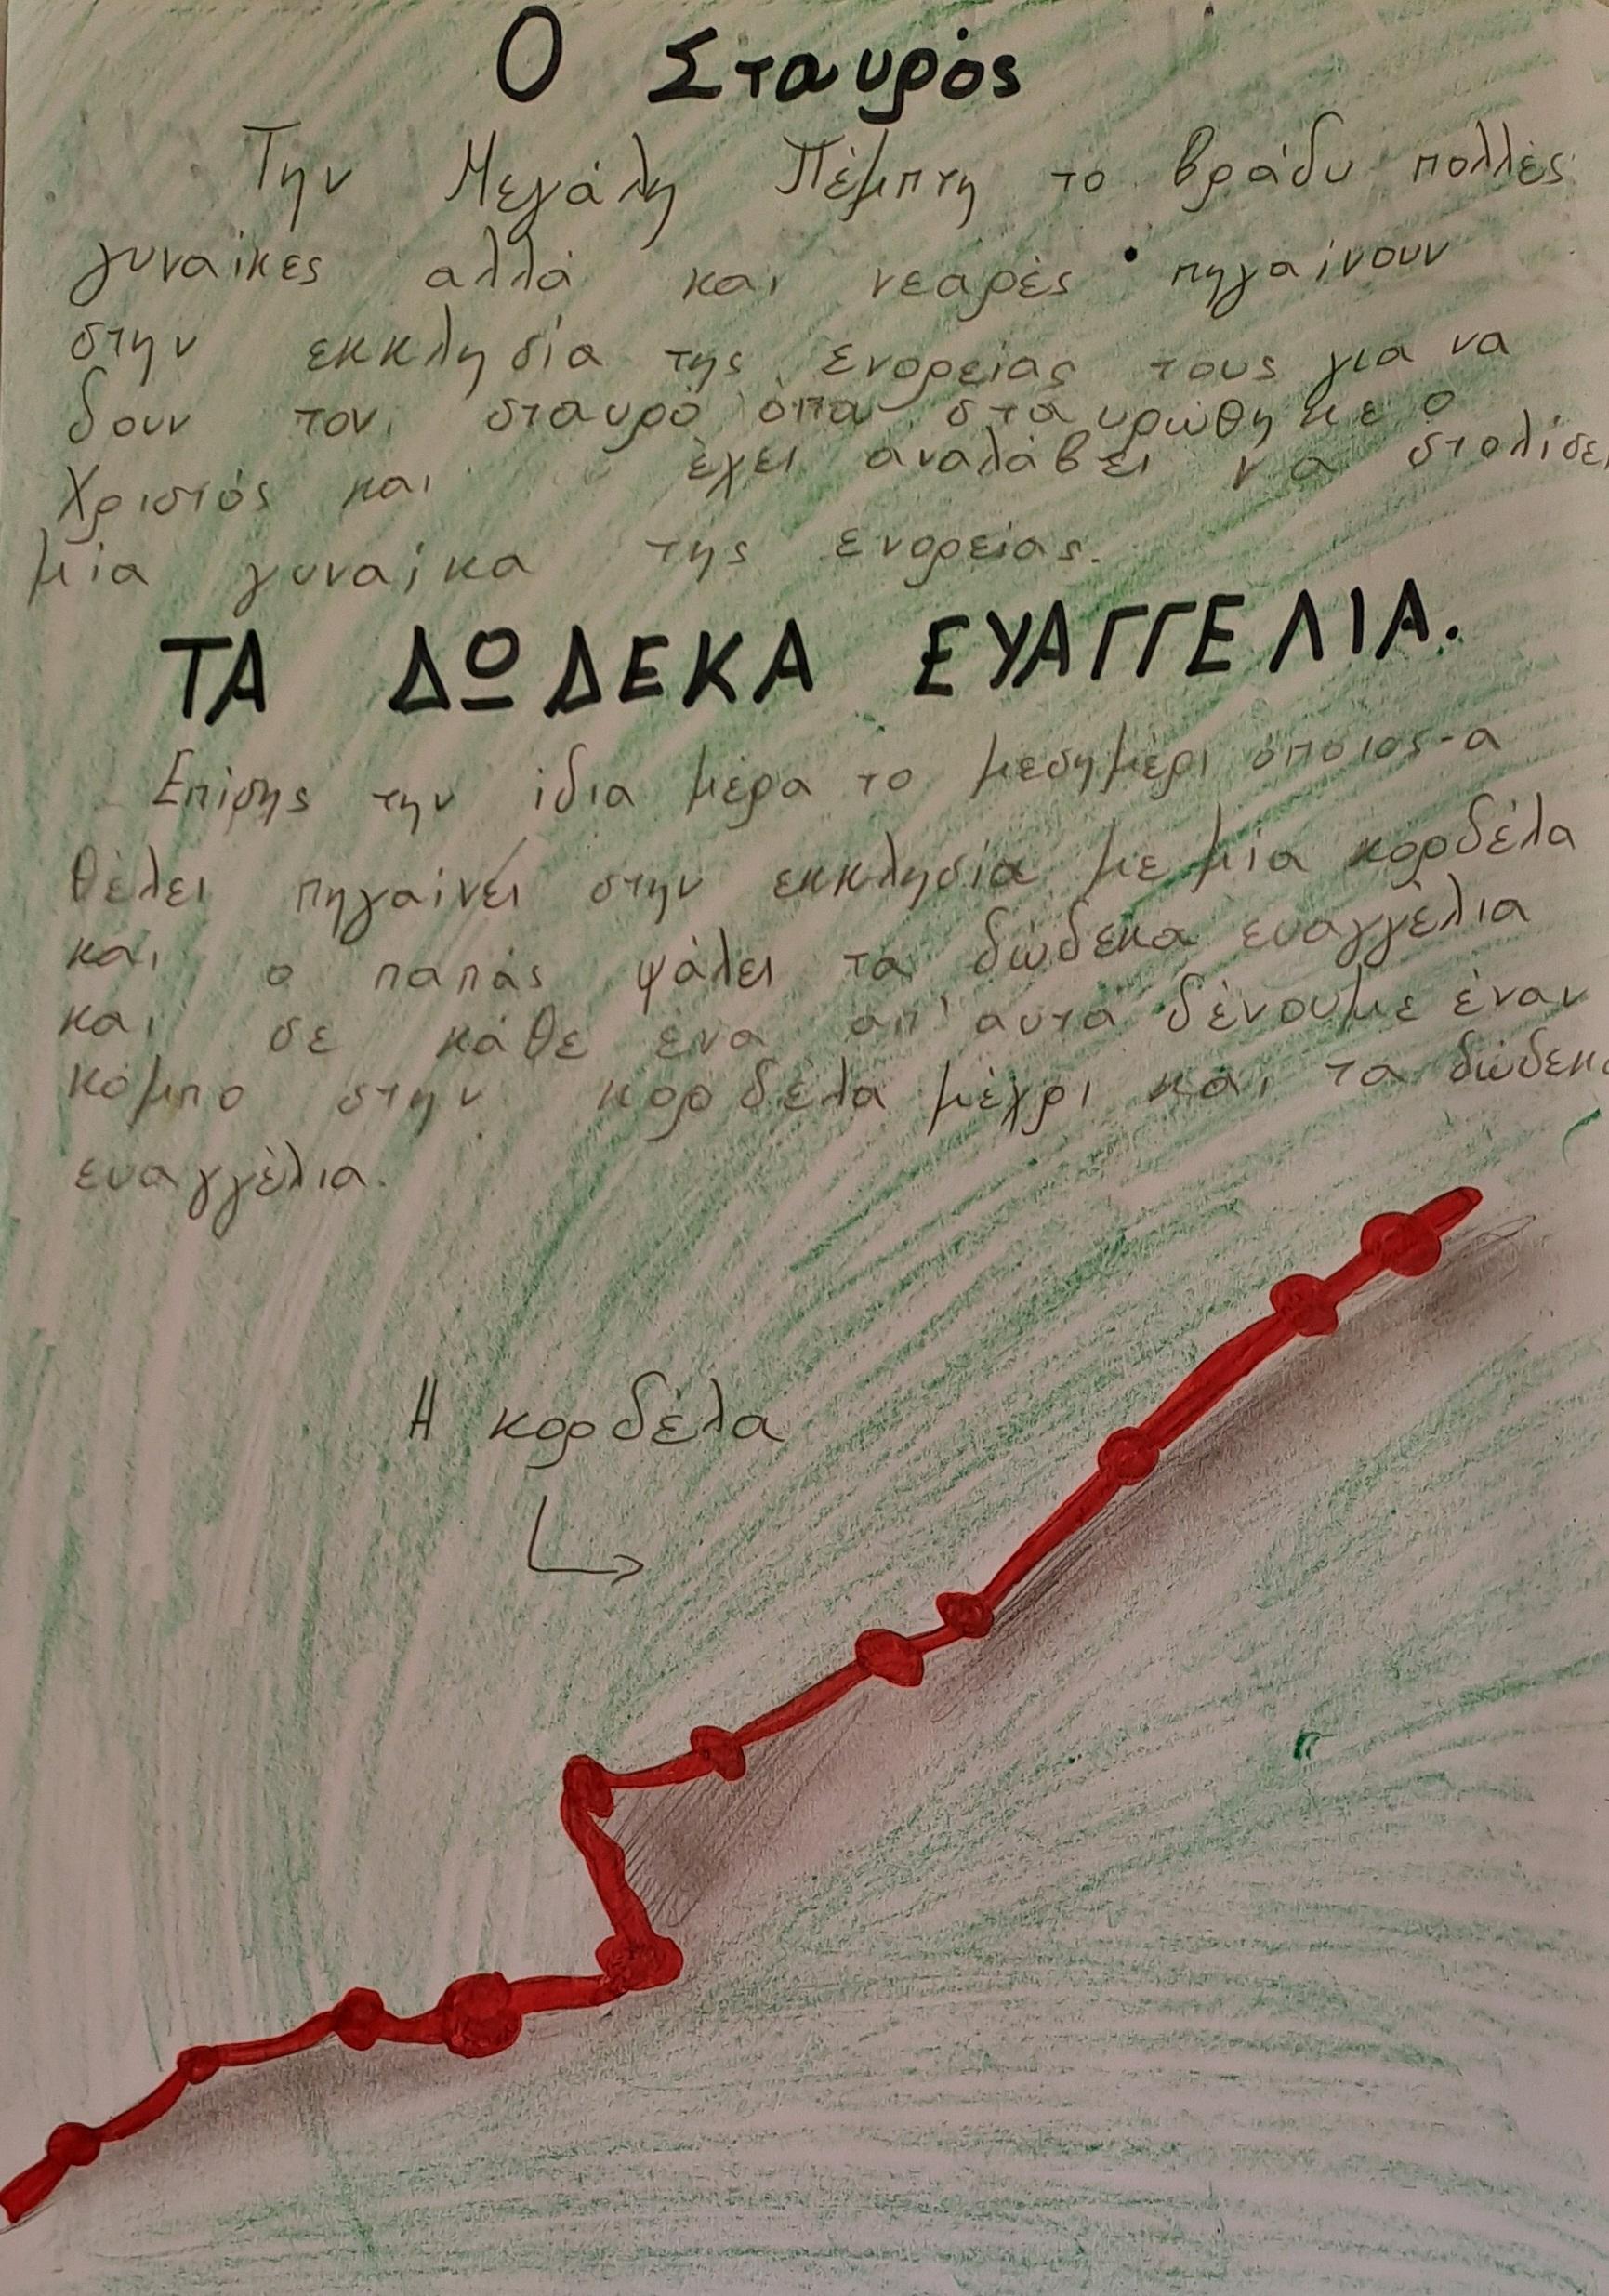 Ο Σταυρός
Την Μεγάλη Πέμπτη το βράδυ πολλές
γυναίκες αλλά και νεαρές πηγαίνουν
στην εκκλησία της ενορείας τους για να
δουν τον σταυρό όπα σταυρώθηκε ο
Χριστός και έχει αναλάβει να στολίσει
μία γυναίκα της ενορείας.
ΤΑ ΔΩΔΕΚΑ ΕΥΑΓΓΕΛΙΑ.
Επίσης την ίδια μέρα το μεσημέρι όποιος-α
θέλει πηγαίνει στην εκκλησία με μία κορδέλα
και ο παπάς ψάλει τα δώδεκα ευαγγέλια
και σε κάθε ένα απ' αυτά δένουμε έναν
κόμπο στην κορδέλα μέχρι και τα δώδεκα
ευαγγέλια.
Η κορδέλα